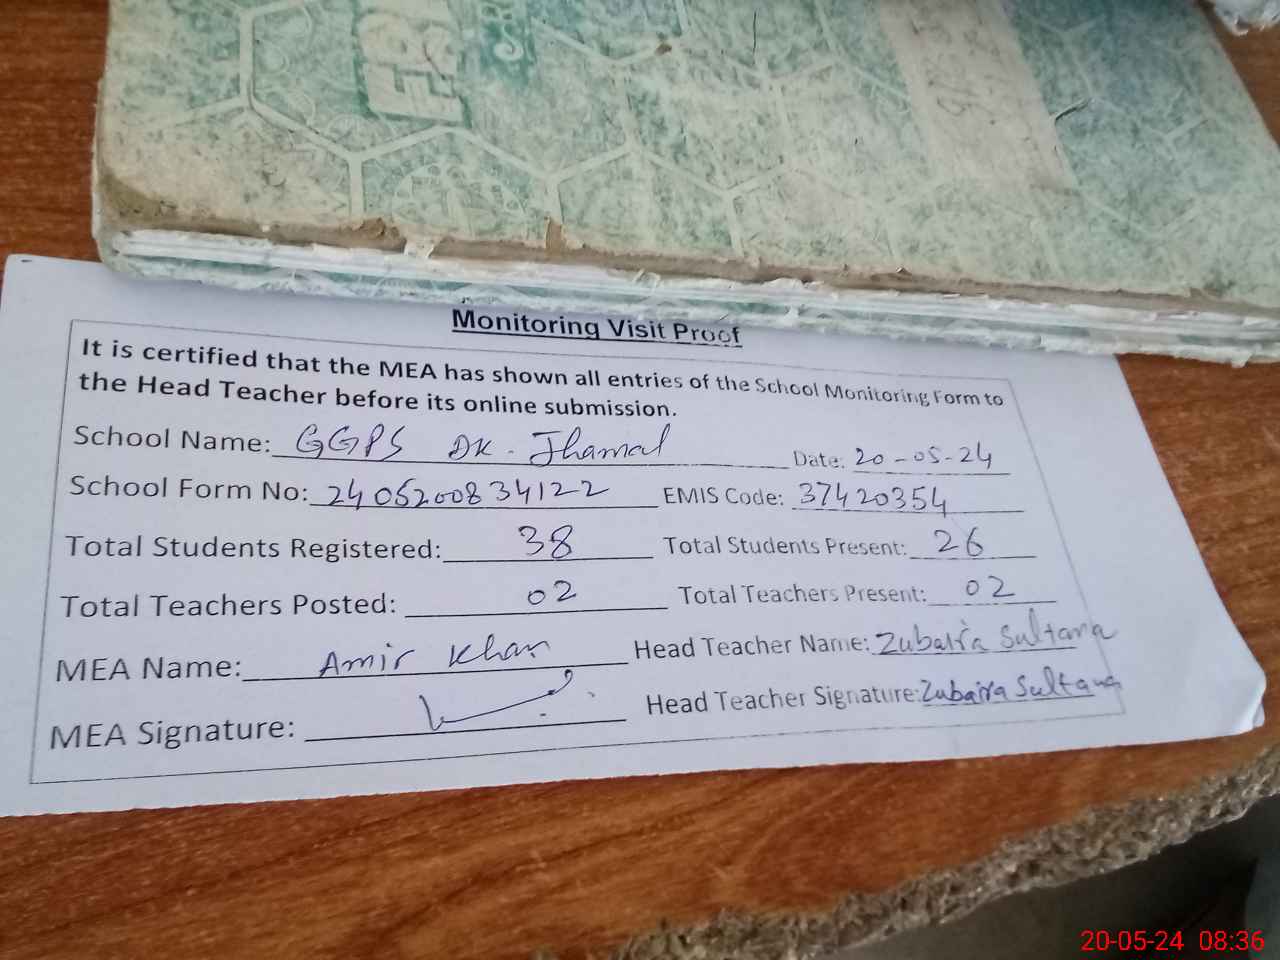 Monitoring Visit Proof
It is certified that the MEA has shown all entries of the School Monitoring Form to
the Head Teacher before its online submission.
School Name: GGPS DK. Jhamal Date: 20-05-24
School Form No: 2405200834122 EMIS Code: 37420354
Total Students Registered: 38 Total Students Present: 26
Total Teachers Posted: 02 Total Teachers Present: 02
MEA Name: Amir Khan Head Teacher Name: Zubaira Sultana
MEA Signature: Head Teacher Signature: Zubaira Sultana
20-05-24 08:36